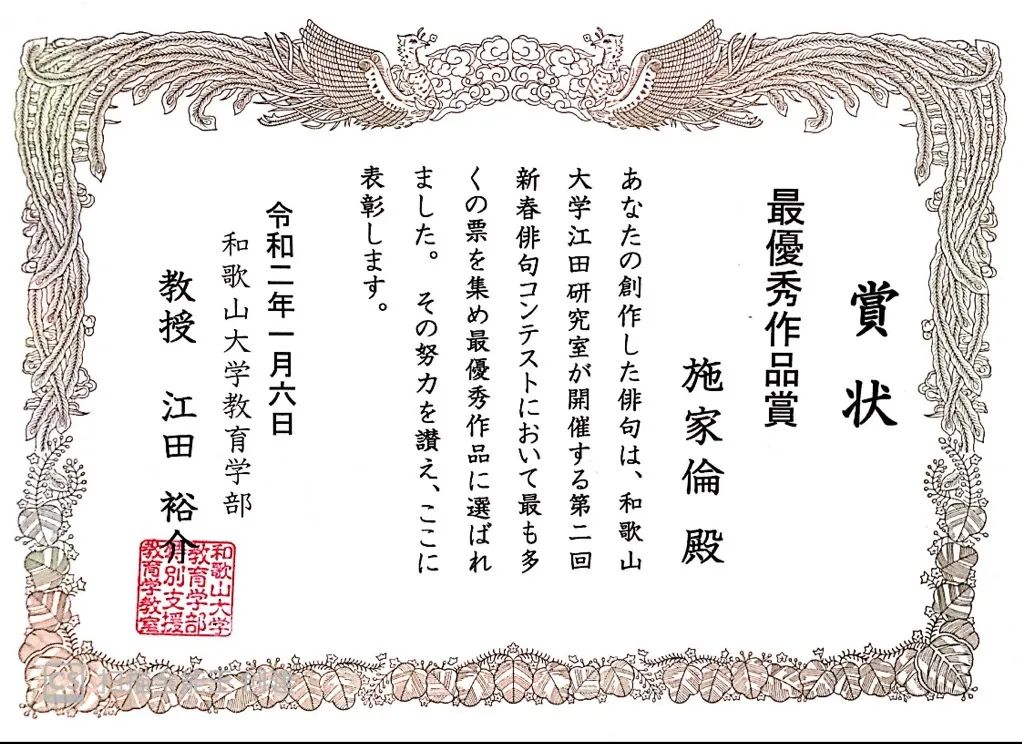 賞状
最優秀作品賞
施家倫 殿
あなたの創作した俳句は、和歌山
大学江田研究室が開催する第二回
新春俳句コンテストにおいて最も多
くの票を集め最優秀作品に選ばれ
ました。 その努力を讃え、ここに
表彰します。
令和二年一月六日
和歌山大学教育学部
教授 江田 裕介
和歌山大学
教育学部
特別支援
教育学教室
CS